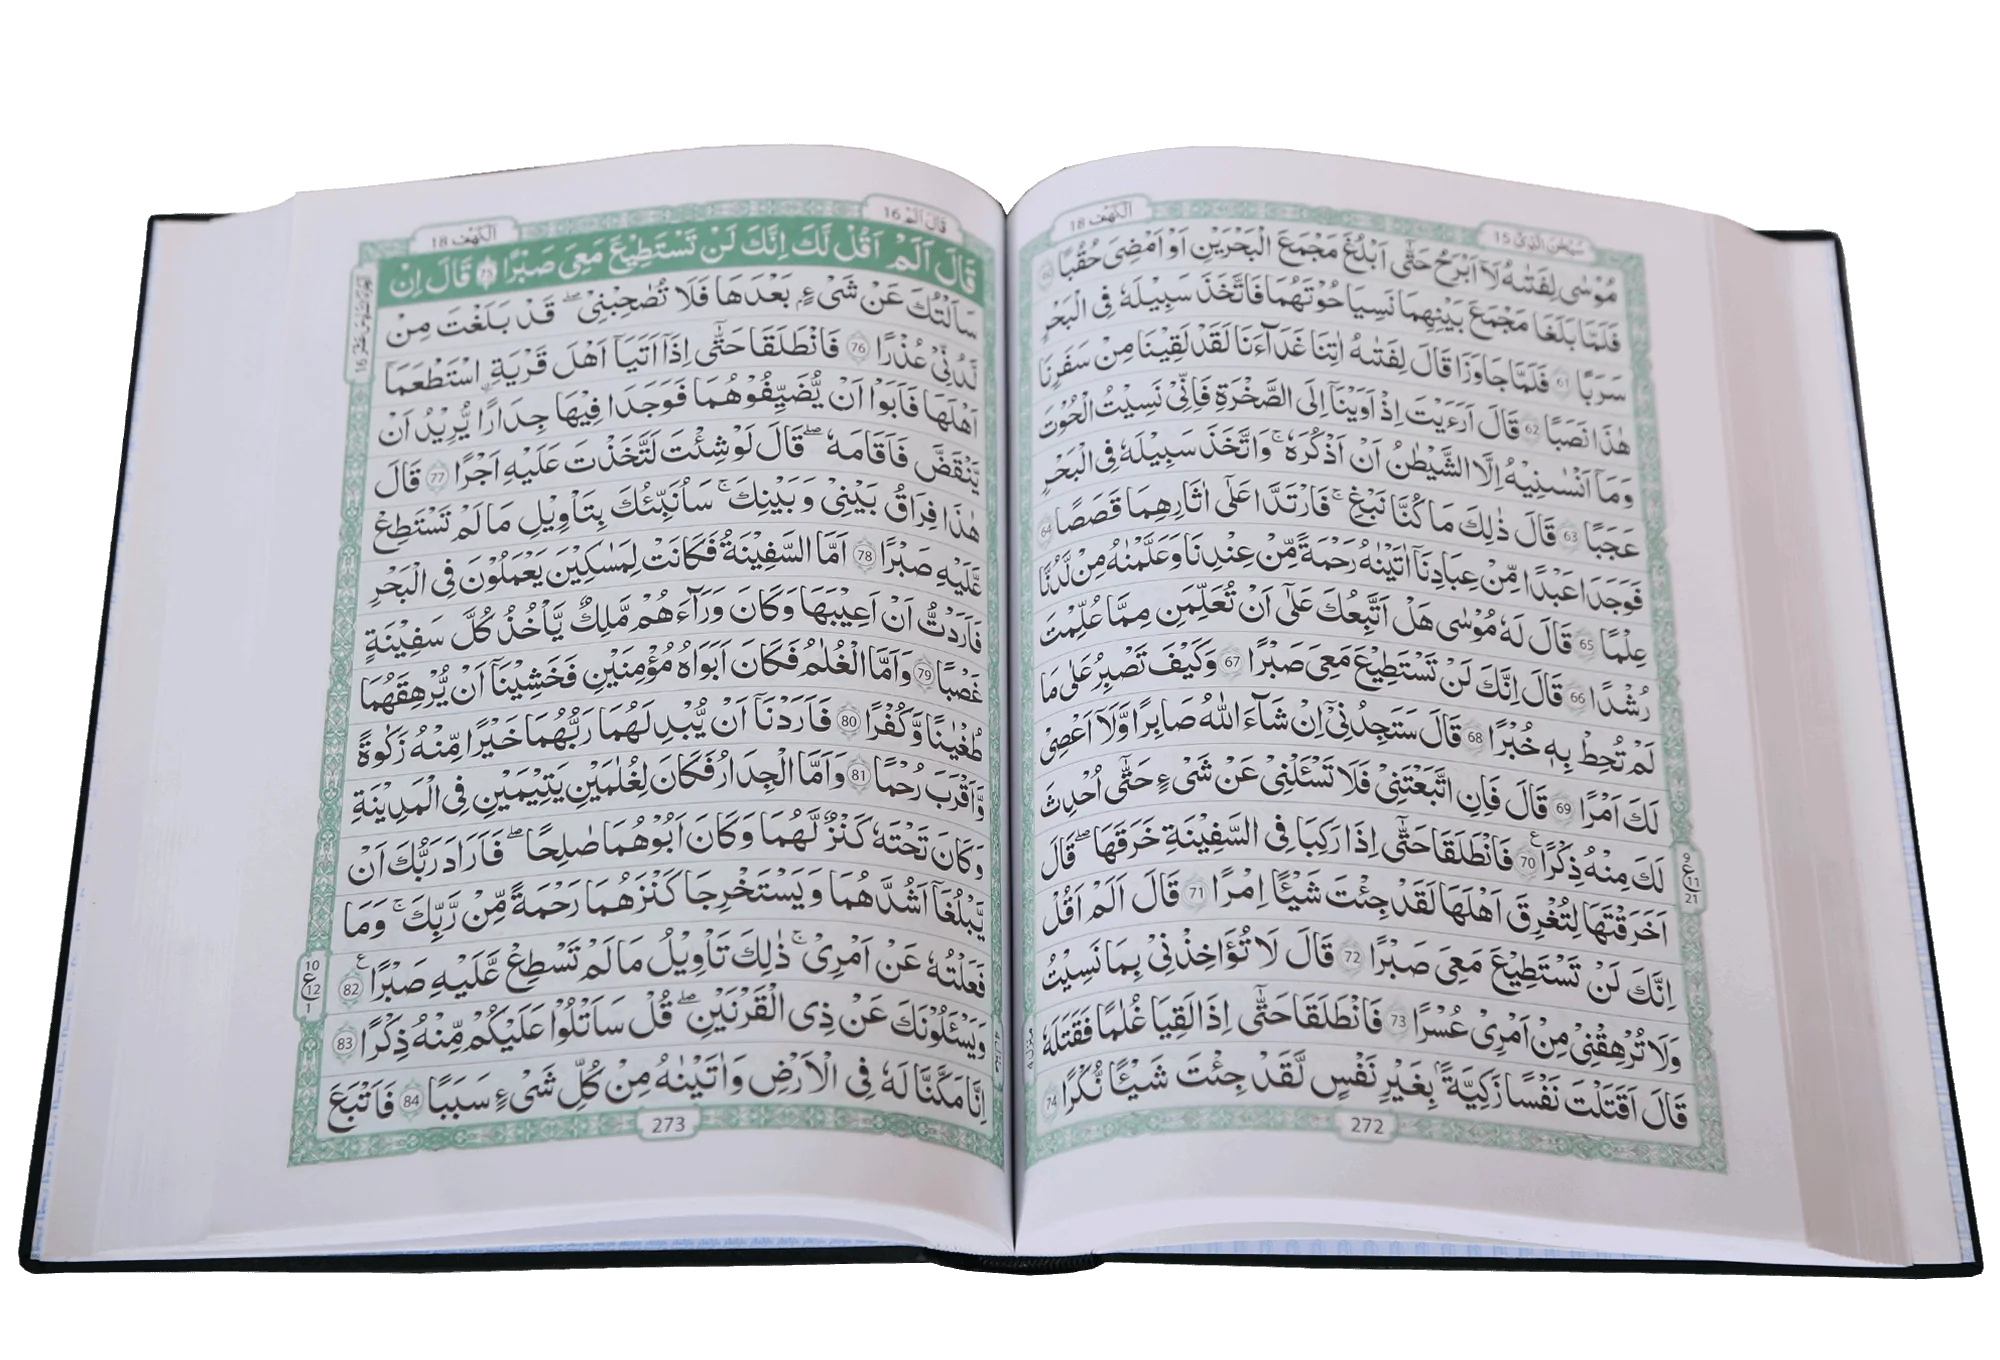 الكهف 18
سبحٰن الذيٓ 15
مُوۡسٰى لِفَتٰٮهُ لَاۤ اَبۡرَحُ حَتّٰۤى اَبۡلُغَ مَجۡمَعَ الۡبَحۡرَيۡنِ اَوۡ اَمۡضِىَ حُقُبًا 60
فَلَمَّا بَلَغَا مَجۡمَعَ بَيۡنِهِمَا نَسِيَا حُوۡتَهُمَا فَاتَّخَذَ سَبِيۡلَهٗ فِى الۡبَحۡرِ
سَرَبًا 61 فَلَمَّا جَاوَزَا قَالَ لِفَتٰٮهُ اٰتِنَا غَدَآءَنَا لَقَدۡ لَقِيۡنَا مِنۡ سَفَرِنَا
هٰذَا نَصَبًا 62 قَالَ اَرَءَيۡتَ اِذۡ اَوَيۡنَاۤ اِلَى الصَّخۡرَةِ فَاِنِّىۡ نَسِيۡتُ الۡحُوۡتَ
وَمَاۤ اَنۡسٰٮنِيۡهُ اِلَّا الشَّيۡطٰنُ اَنۡ اَذۡكُرَهٗ ۚ وَاتَّخَذَ سَبِيۡلَهٗ فِى الۡبَحۡرِ
عَجَبًا 63 قَالَ ذٰلِكَ مَا كُنَّا نَبۡغِ ۚ فَارۡتَدَّا عَلٰٓى اٰثَارِهِمَا قَصَصًا 64
فَوَجَدَا عَبۡدًا مِّنۡ عِبَادِنَاۤ اٰتَيۡنٰهُ رَحۡمَةً مِّنۡ عِنۡدِنَا وَعَلَّمۡنٰهُ مِنۡ لَّدُنَّا
عِلۡمًا 65 قَالَ لَهٗ مُوۡسٰى هَلۡ اَتَّبِعُكَ عَلٰٓى اَنۡ تُعَلِّمَنِ مِمَّا عُلِّمۡتَ
رُشۡدًا 66 قَالَ اِنَّكَ لَنۡ تَسۡتَطِيۡعَ مَعِىَ صَبۡرًا 67 وَكَيۡفَ تَصۡبِرُ عَلٰى مَا
لَمۡ تُحِطۡ بِهٖ خُبۡرًا 68 قَالَ سَتَجِدُنِىۡۤ اِنۡ شَآءَ اللّٰهُ صَابِرًا وَّلَاۤ اَعۡصِىۡ
لَكَ اَمۡرًا 69 قَالَ فَاِنِ اتَّبَعۡتَنِىۡ فَلَا تَسۡـَٔـلۡنِىۡ عَنۡ شَىۡءٍ حَتّٰٓى اُحۡدِثَ
لَكَ مِنۡهُ ذِكۡرًا 70 فَانْطَلَقَا حَتّٰۤى اِذَا رَكِبَا فِى السَّفِيۡنَةِ خَرَقَهَا ؕ قَالَ
اَخَرَقۡتَهَا لِتُغۡرِقَ اَهۡلَهَا لَقَدۡ جِئۡتَ شَيۡـًٔـا اِمۡرًا 71 قَالَ اَلَمۡ اَقُلۡ
اِنَّكَ لَنۡ تَسۡتَطِيۡعَ مَعِىَ صَبۡرًا 72 قَالَ لَا تُؤَاخِذۡنِىۡ بِمَا نَسِيۡتُ
وَلَا تُرۡهِقۡنِىۡ مِنۡ اَمۡرِىۡ عُسۡرًا 73 فَانْطَلَقَا حَتّٰٓى اِذَا لَقِيَا غُلٰمًا فَقَتَلَهٗ
قَالَ اَقَتَلۡتَ نَفۡسًا زَكِيَّةً ۢ بِغَيۡرِ نَفۡسٍ لَّقَدۡ جِئۡتَ شَيۡـًٔـا نُّكۡرًا 74
9
ع
11
21
منزل 4
272
قال الم 16
الكهف 18
قَالَ اَلَمۡ اَقُلْ لَّكَ اِنَّكَ لَنۡ تَسۡتَطِيۡعَ مَعِىَ صَبۡرًا 75 قَالَ اِنۡ
سَاَلۡتُكَ عَنۡ شَىۡءٍۢ بَعۡدَهَا فَلَا تُصٰحِبۡنِىۡ ۚ قَدۡ بَلَغۡتَ مِنۡ
لَّدُنِّىۡ عُذۡرًا 76 فَانْطَلَقَا حَتّٰٓى اِذَاۤ اَتَيَاۤ اَهۡلَ قَرۡيَةِ ۨ اسۡتَطۡعَمَاۤ
اَهۡلَهَا فَاَبَوۡا اَنۡ يُّضَيِّفُوۡهُمَا فَوَجَدَا فِيۡهَا جِدَارًا يُّرِيۡدُ اَنۡ
يَّـنۡقَضَّ فَاَقَامَهٗ ؕ قَالَ لَوۡ شِئۡتَ لَـتَّخَذۡتَ عَلَيۡهِ اَجۡرًا 77 قَالَ
هٰذَا فِرَاقُ بَيۡنِىۡ وَبَيۡنِكَ ۚ سَاُنَـبِّئُكَ بِتَاۡوِيۡلِ مَا لَمۡ تَسۡتَطِعْ
عَّلَيۡهِ صَبۡرًا 78 اَمَّا السَّفِيۡنَةُ فَكَانَتۡ لِمَسٰكِيۡنَ يَعۡمَلُوۡنَ فِى الۡبَحۡرِ
فَاَرَدْتُّ اَنۡ اَعِيۡبَهَا وَكَانَ وَرَآءَهُمۡ مَّلِكٌ يَّاۡخُذُ كُلَّ سَفِيۡنَةٍ
غَصۡبًا 79 وَاَمَّا الۡغُلٰمُ فَكَانَ اَبَوٰهُ مُؤۡمِنَيۡنِ فَخَشِيۡنَاۤ اَنۡ يُّرۡهِقَهُمَا
طُغۡيٰنًا وَّكُفۡرًا 80 فَاَرَدۡنَاۤ اَنۡ يُّبۡدِلَهُمَا رَبُّهُمَا خَيۡرًا مِّنۡهُ زَكٰوةً
وَّاَقۡرَبَ رُحۡمًا 81 وَاَمَّا الۡجِدَارُ فَكَانَ لِغُلٰمَيۡنِ يَتِيۡمَيۡنِ فِى الۡمَدِيۡنَةِ
وَكَانَ تَحۡتَهٗ كَنۡزٌ لَّهُمَا وَكَانَ اَبُوۡهُمَا صٰلِحًا ۚ فَاَرَادَ رَبُّكَ اَنۡ
يَّبۡلُغَاۤ اَشُدَّهُمَا وَيَسۡتَخۡرِجَا كَنۡزَهُمَا رَحۡمَةً مِّنۡ رَّبِّكَ ۚ وَمَا
فَعَلۡتُهٗ عَنۡ اَمۡرِىۡ ؕ ذٰلِكَ تَاۡوِيۡلُ مَا لَمۡ تَسۡطِعْ عَّلَيۡهِ صَبۡرًا 82
وَيَسۡـَٔـلُوۡنَكَ عَنۡ ذِى الۡقَرۡنَيۡنِ ؕ قُلۡ سَاَتۡلُوۡا عَلَيۡكُمۡ مِّنۡهُ ذِكۡرًا 83
اِنَّا مَكَّنَّا لَهٗ فِى الۡاَرۡضِ وَاٰتَيۡنٰهُ مِنۡ كُلِّ شَىۡءٍ سَبَبًا 84 فَاَتۡبَعَ
10
ع
12
1
273